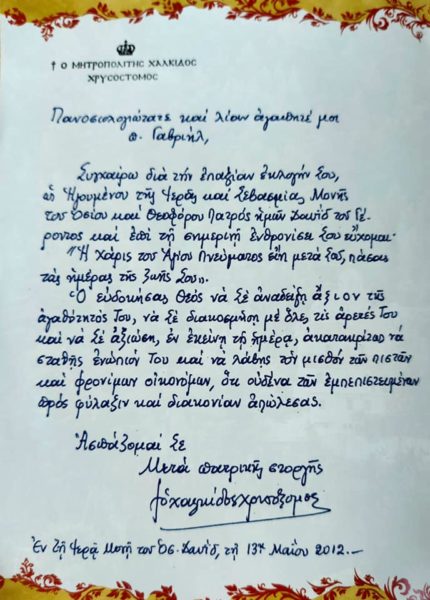 † Ο ΜΗΤΡΟΠΟΛΙΤΗΣ ΧΑΛΚΙΔΟΣ
ΧΡΥΣΟΣΤΟΜΟΣ
Πανοσιολογιώτατε καί λίαν ἀγαπητέ μοι
π. Γαβριήλ,
Συγχαίρω διά τήν ἐπαξίαν ἐκλογήν Σου,
ὡς Ἡγουμένου τῆς Ἱερᾶς καί Σεβασμίας Μονῆς
τοῦ Ὁσίου καί Θεοφόρου Πατρός ἡμῶν Δαυΐδ τοῦ Γέ-
ροντος καί ἐπί τῇ σημερινῇ ἐνθρονίσει Σου εὔχομαι·
"Ἡ Χάρις τοῦ Ἁγίου Πνεύματος εἴη μετά Σοῦ, πάσας
τάς ἡμέρας τῆς ζωῆς Σου".
Ὁ εὐδοκήσας Θεός νά Σέ ἀναδείξῃ ἄξιον τῆς
ἀγαθότητός Του, νά Σέ διακοσμήσῃ μέ ὅλες τίς ἀρετές Του
καί νά Σέ ἀξιώσῃ, ἐν ἐκείνῃ τῇ ἡμέρᾳ, ἀκατακρίτως νά
σταθῇς ἐνώπιόν Του καί νά λάβῃς τόν μισθόν τῶν πιστῶν
καί φρονίμων οἰκονόμων, ὅτι οὐδένα τῶν ἐμπεπιστευμένων
πρός φύλαξιν καί διακονίαν ἀπώλεσας.
Ἀσπάζομαί Σε
Μετά πατρικῆς στοργῆς
† ὁ Χαλκίδος Χρυσόστομος
Ἐν τῇ Ἱερᾷ Μονῇ τοῦ Ὁσ. Δαυΐδ, τῇ 13ῃ Μαΐου 2012.-